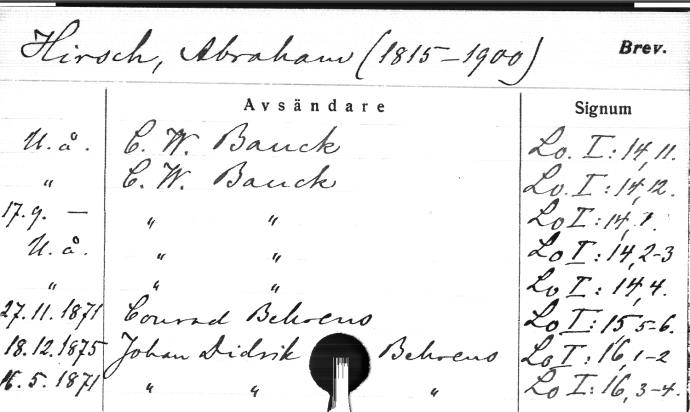 Hirsch, Abraham (1815-1900) Brev.
Avsändare Signum
U. å. C. W. Bauck Lo. I: 14, 11.
" C. W. Bauck Lo. I: 14, 12.
17. 9. — " " Lo I: 14, 1.
U. å. " " Lo I: 14, 2-3
" " " Lo I: 14, 4.
27. 11. 1871 Conrad Behrens Lo I: 15 5-6.
18. 12. 1875 Johan Didrik Behrens Lo I: 16, 1-2
16. 5. 1871 " " " Lo I: 16, 3-4.